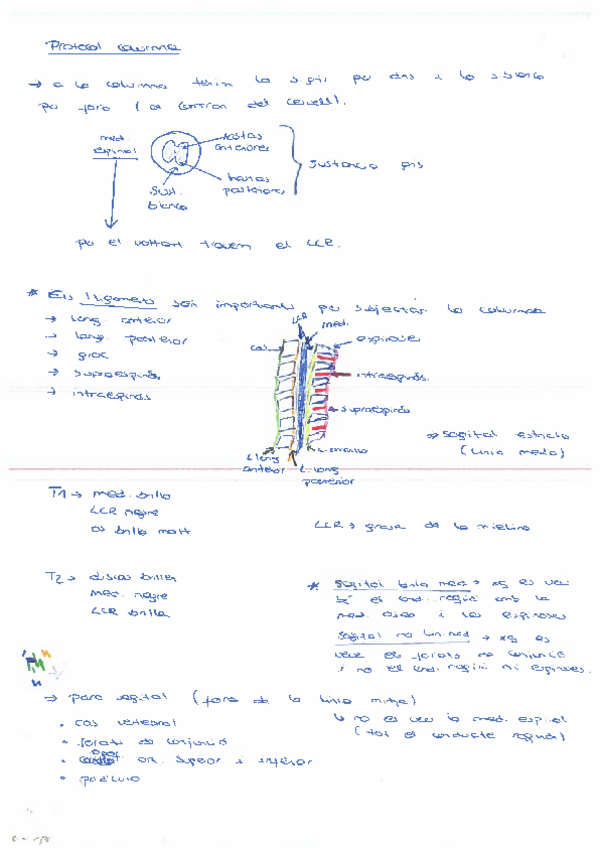 Protocol columna
→ a la columna tenim la s. gris per dins i la s. blanca
per fora (al contrari del cervell).
med.
espinal
astas
anteriores
astas
posteriores
Sust.
blanca
Sustancia gris
per el voltant tenim el LCR.
* Els lligaments són importants per subjectar la columna
→ long. anterior
→ long. posterior
→ groc
→ supraespinós
→ intraespinós
LCR
med.
cos
espinoses
intraespinós.
supraespinós
L. amarillo
L. long
anterior
L. long
posterior
⇒ sagital estricto
(línia media)
T1 → med. brilla
LCR negre
os brilla molt
LCR → grasa de la mielina
T2 → discos brillen
med. negre
LCR brilla
* Sagital línia med → es veu
bé el cond. regini amb la
med. osea i les espinoses
Sagital no lín. med → es
veu el forats de conjunció
i no el cond. regini ni espinoses.
→ para sagital (fora de la línia mitja)
• cos vertebral
• forats de conjunció
• art. superior i inferior
• pedículo
↳ no es veu la med. espinal
(tot el conducte)